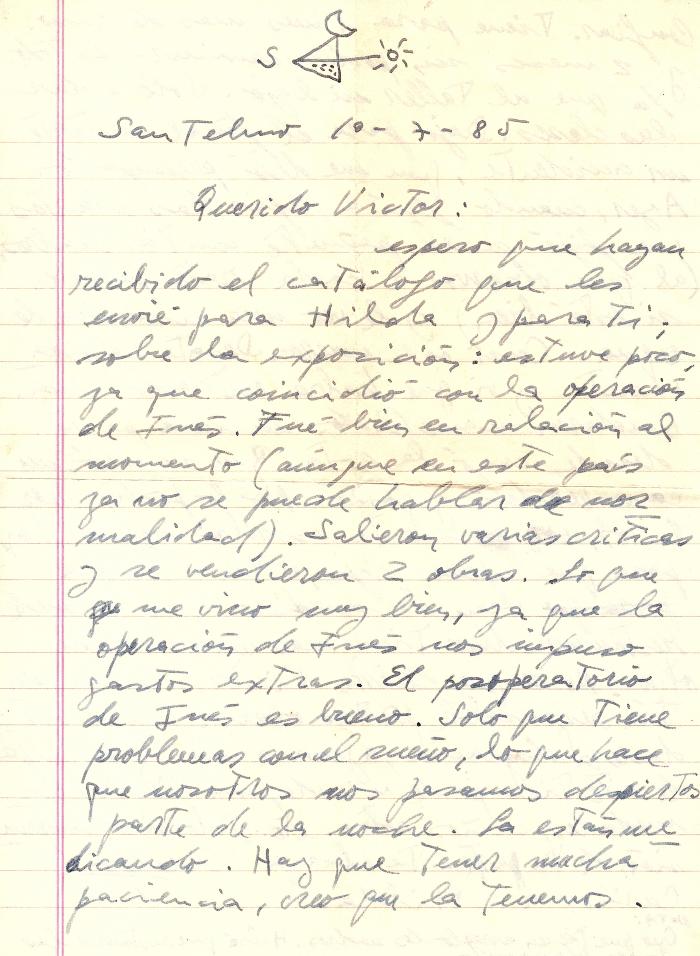 S
San Telmo 10-7-85
Querido Victor:
espero que hayan
recibido el catálogo que les
envié para Hilda y para Ti;
sobre la exposición: estuve poco,
ya que coincidió con la operación
de Inés. Fué bien en relación al
momento (aunque en este país
ya no se puede hablar de nor
malidad). Salieron varias críticas
y se vendieron 2 obras. Lo que
me vino muy bien, ya que la
operación de Inés nos impuso
gastos extras. El posoperatorio
de Inés es bueno. Solo que Tiene
problemas con el sueño, lo que hace
que nosotros nos pasamos despiertos
parte de la noche. La están me
dicando. Hay que Tener mucha
paciencia, creo que la Tenemos.